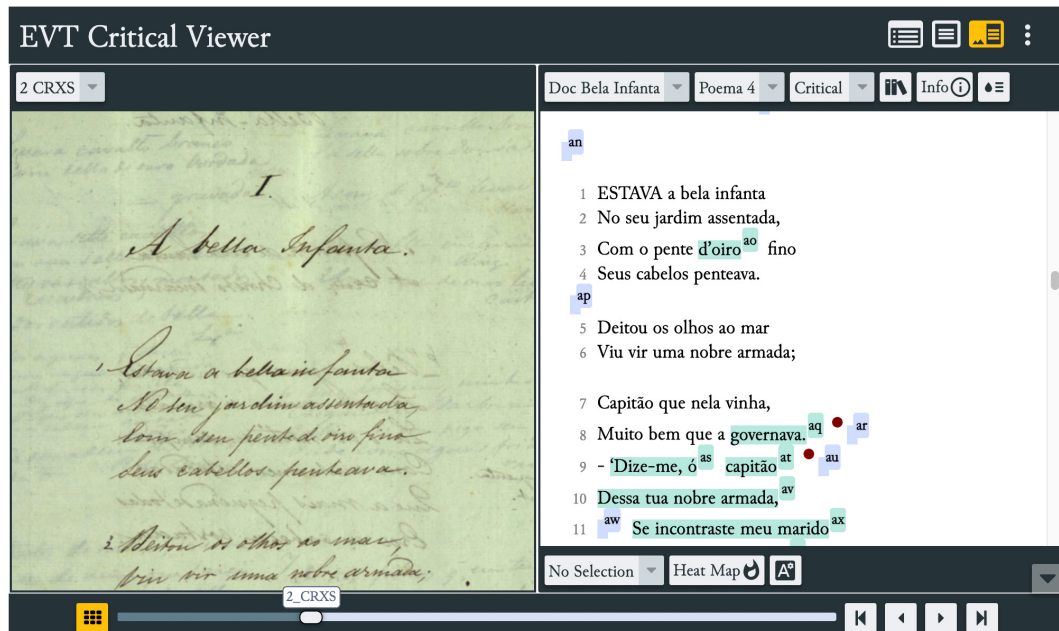 EVT Critical Viewer
2 CRXS
I.
A bella Infanta.
1 Estava a bella infanta
No seu jardim assentada,
Com seu pente d'oiro fino
Seus cabellos penteava.
2 Deitou os olhos ao mar,
viu vir uma nobre armada;
Doc Bela Infanta Poema 4 Critical Info
an
1 ESTAVA a bela infanta
2 No seu jardim assentada,
3 Com o pente d'oiro ao fino
4 Seus cabelos penteava.
ap
5 Deitou os olhos ao mar
6 Viu vir uma nobre armada;
7 Capitão que nela vinha,
8 Muito bem que a governava. aq ar
9 - 'Dize-me, ó as capitão at au
10 Dessa tua nobre armada, av
11 aw Se incontraste meu marido ax
No Selection Heat Map A
2_CRXS